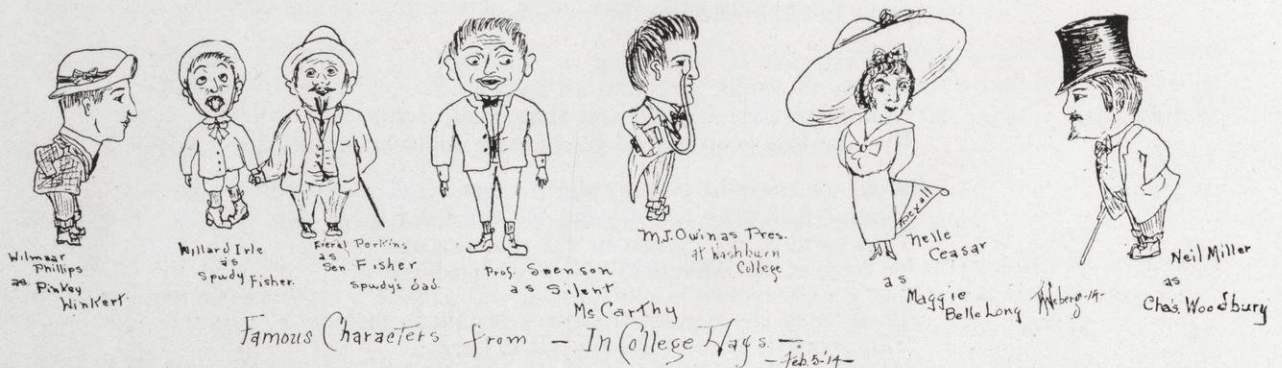 Wilmaar
Phillips
as Pinkey
Winkert
Willard Irle
as
Spudy Fisher.
Perkins
as
Sen Fisher
Spudy's Dad.
Prof. Swenson
as Silent
McCarthy
M.J. Owin as Pres.
at Washburn
College
Nelle
Ceasar
as
Maggie
Belle Long
Neil Miller
as
Chas. Woodbury
Famous Characters from — In College Days. —
— Feb. 5-'14 —